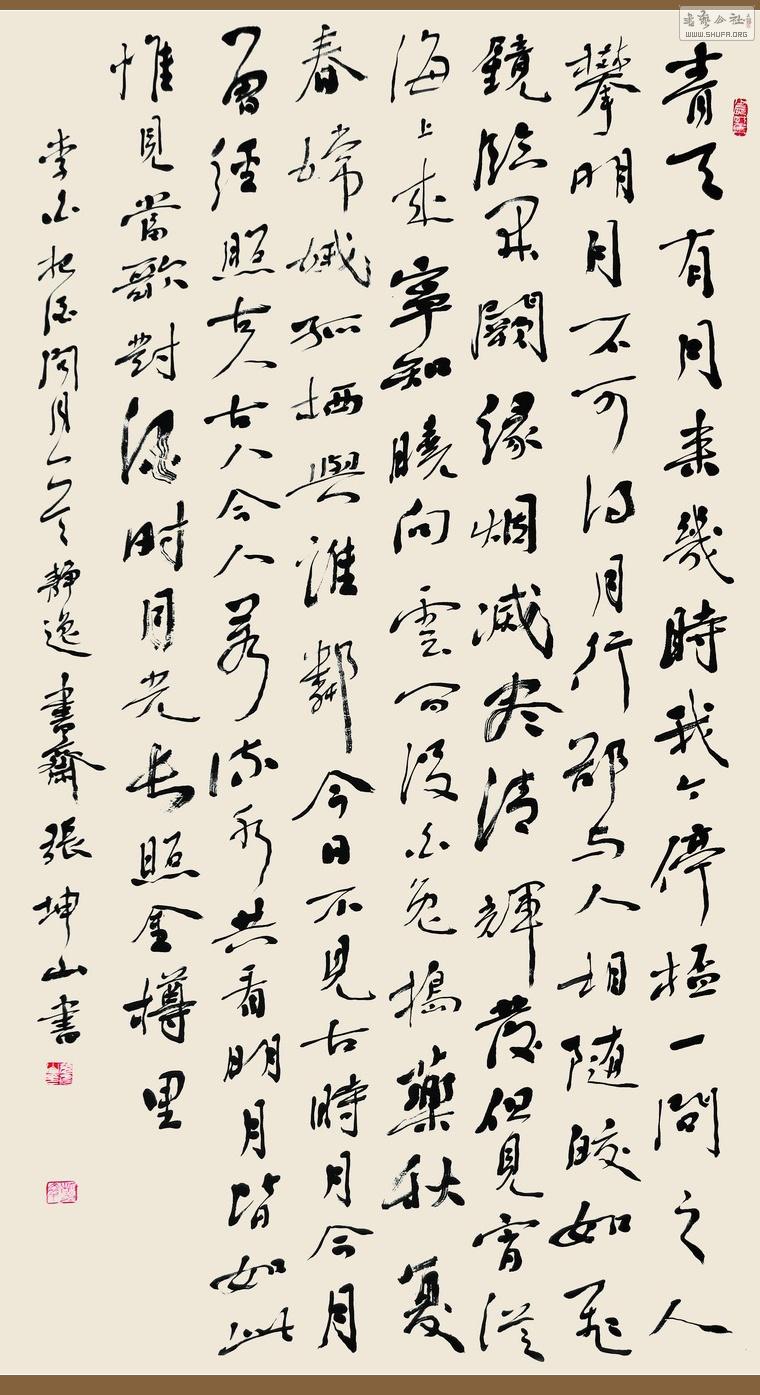 書藝公社
WWW.SHUFA.ORG
青天有月來幾時我今停杯一問之人
攀明月不可得月行卻与人相隨皎如飛
鏡臨丹闕緑烟滅尽清輝發但見宵從
海上來寧知曉向雲间沒白兔搗藥秋复
春嫦娥孤栖與誰鄰今日不見古時月今月
曾經照古人古人今人若流水共看明月皆如此
惟見當歌對酒时月光長照金樽里
李白把酒問月靜逸書齋張坤山書